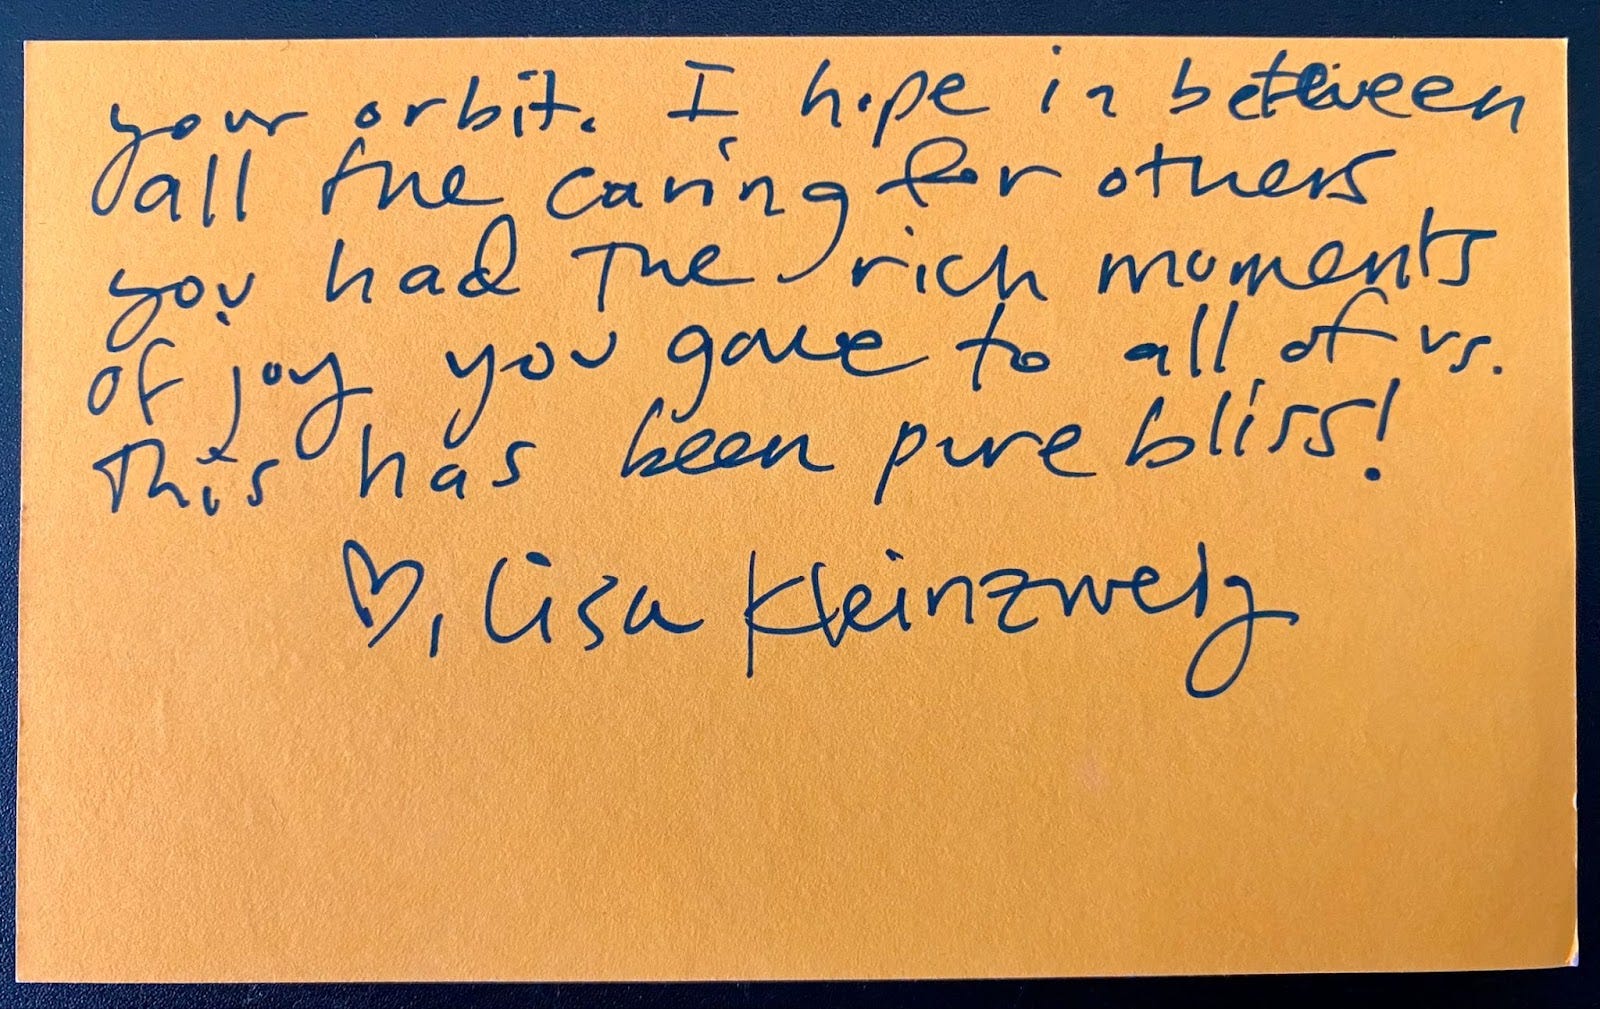 your orbit. I hope in between
all the caring for others
you had the rich moments
of joy you gave to all of us.
This has been pure bliss!
♡, Lisa Kleinzweig